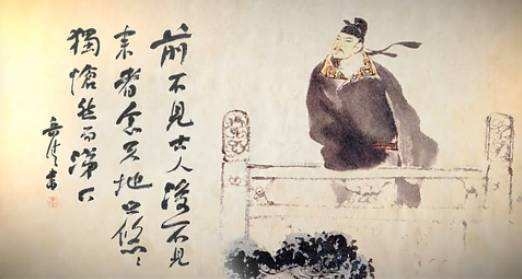 前不見古人後不見
来者念天地之悠々
獨愴然而涕下